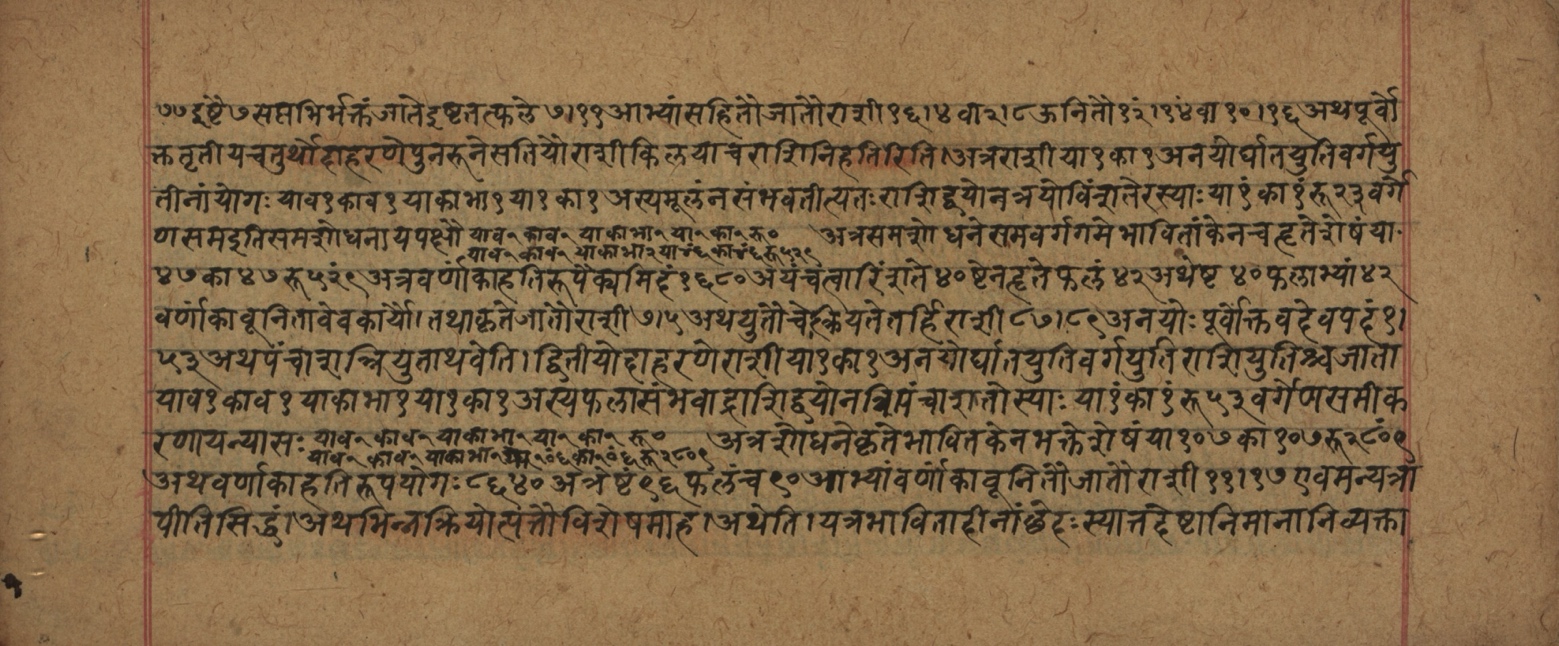 ७७इष्टे७सप्तभिर्भक्तंजातेइष्टतत्फले७।११आभ्यांसहितौजातौराशी१६।४वा२।८ऊनितौ१२ं।१४ंवा१०।१६अथपूर्वो
क्ततृतीयचतुर्थोदाहरणेपुनरूनेसतिययोराशीकिलयाचराशिनिहतिरिति।अत्रराशीया१का१अनयोर्घातयुतिवर्गयु
तीनांयोगः याव१काव१याकाभा१या१का१अस्यमूलंनसंभवतीत्यतःराशिद्वयोनत्रयोविंशतेरस्याःया१ंका१ंरू२३वर्गे
णसमइतिसमशोधनायपक्षौ याव१काव१याकाभा१या१का१रू० अत्रसमशोधनेसमवर्गगमेभावितांकेनचहृतेशेषंया
याव१काव१याकाभा२या४६ंका४६ंरू५२९
४७का४७रू५२ं९अत्रवर्णांकाहतिरूपैक्यमिदं१६८०अयंचत्वारिंशते४०ष्टेनहृतेफलं४२अथेष्ट४०फलाभ्यां४२
वर्णांकावूनितावेवकार्यौ।तथाकृतेजातौराशी७।५अथयुतौचेत्क्रियतेतर्हिराशी८७।८९अनयोःपूर्वोक्तवदेवपदं१।
५३अथपंचाशत्त्रियुताथवेति।द्वितीयोदाहरणेराशीया१का१अनयोर्घातयुतिवर्गयुतिराशियुतिश्चजाता
याव१काव१याकाभा१या१का१अस्यफलासंभवाद्राशिद्वयोनत्रिपंचाशतोस्याःया१ंका१ंरू५३वर्गेणसमीक
रणायन्यासःयाव१काव१याकाभा१या१का१रू० अत्रशोधनेकृतेभावितकेनभक्तेशेषंया१०७का१०७रू२८०ं९
याव१काव१याकाभा२या१०६ंका१०६ंरू२८०९
अथवर्णांकाहतिरूपयोगः८६४०अत्रेष्टं९६फलंच९०आभ्यांवर्णांकावूनितौजातौराशी११।१७एवमन्यत्रा
पीतिसिद्धं।अथभिन्नक्रियोत्पत्तौविशेषमाह।अथेति।यत्रभावितादीनांछेदःस्यात्तदेष्टानिमानानिव्यक्ता